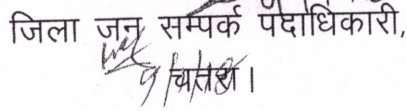 जिला जन सम्पर्क पदाधिकारी,
चतरा।